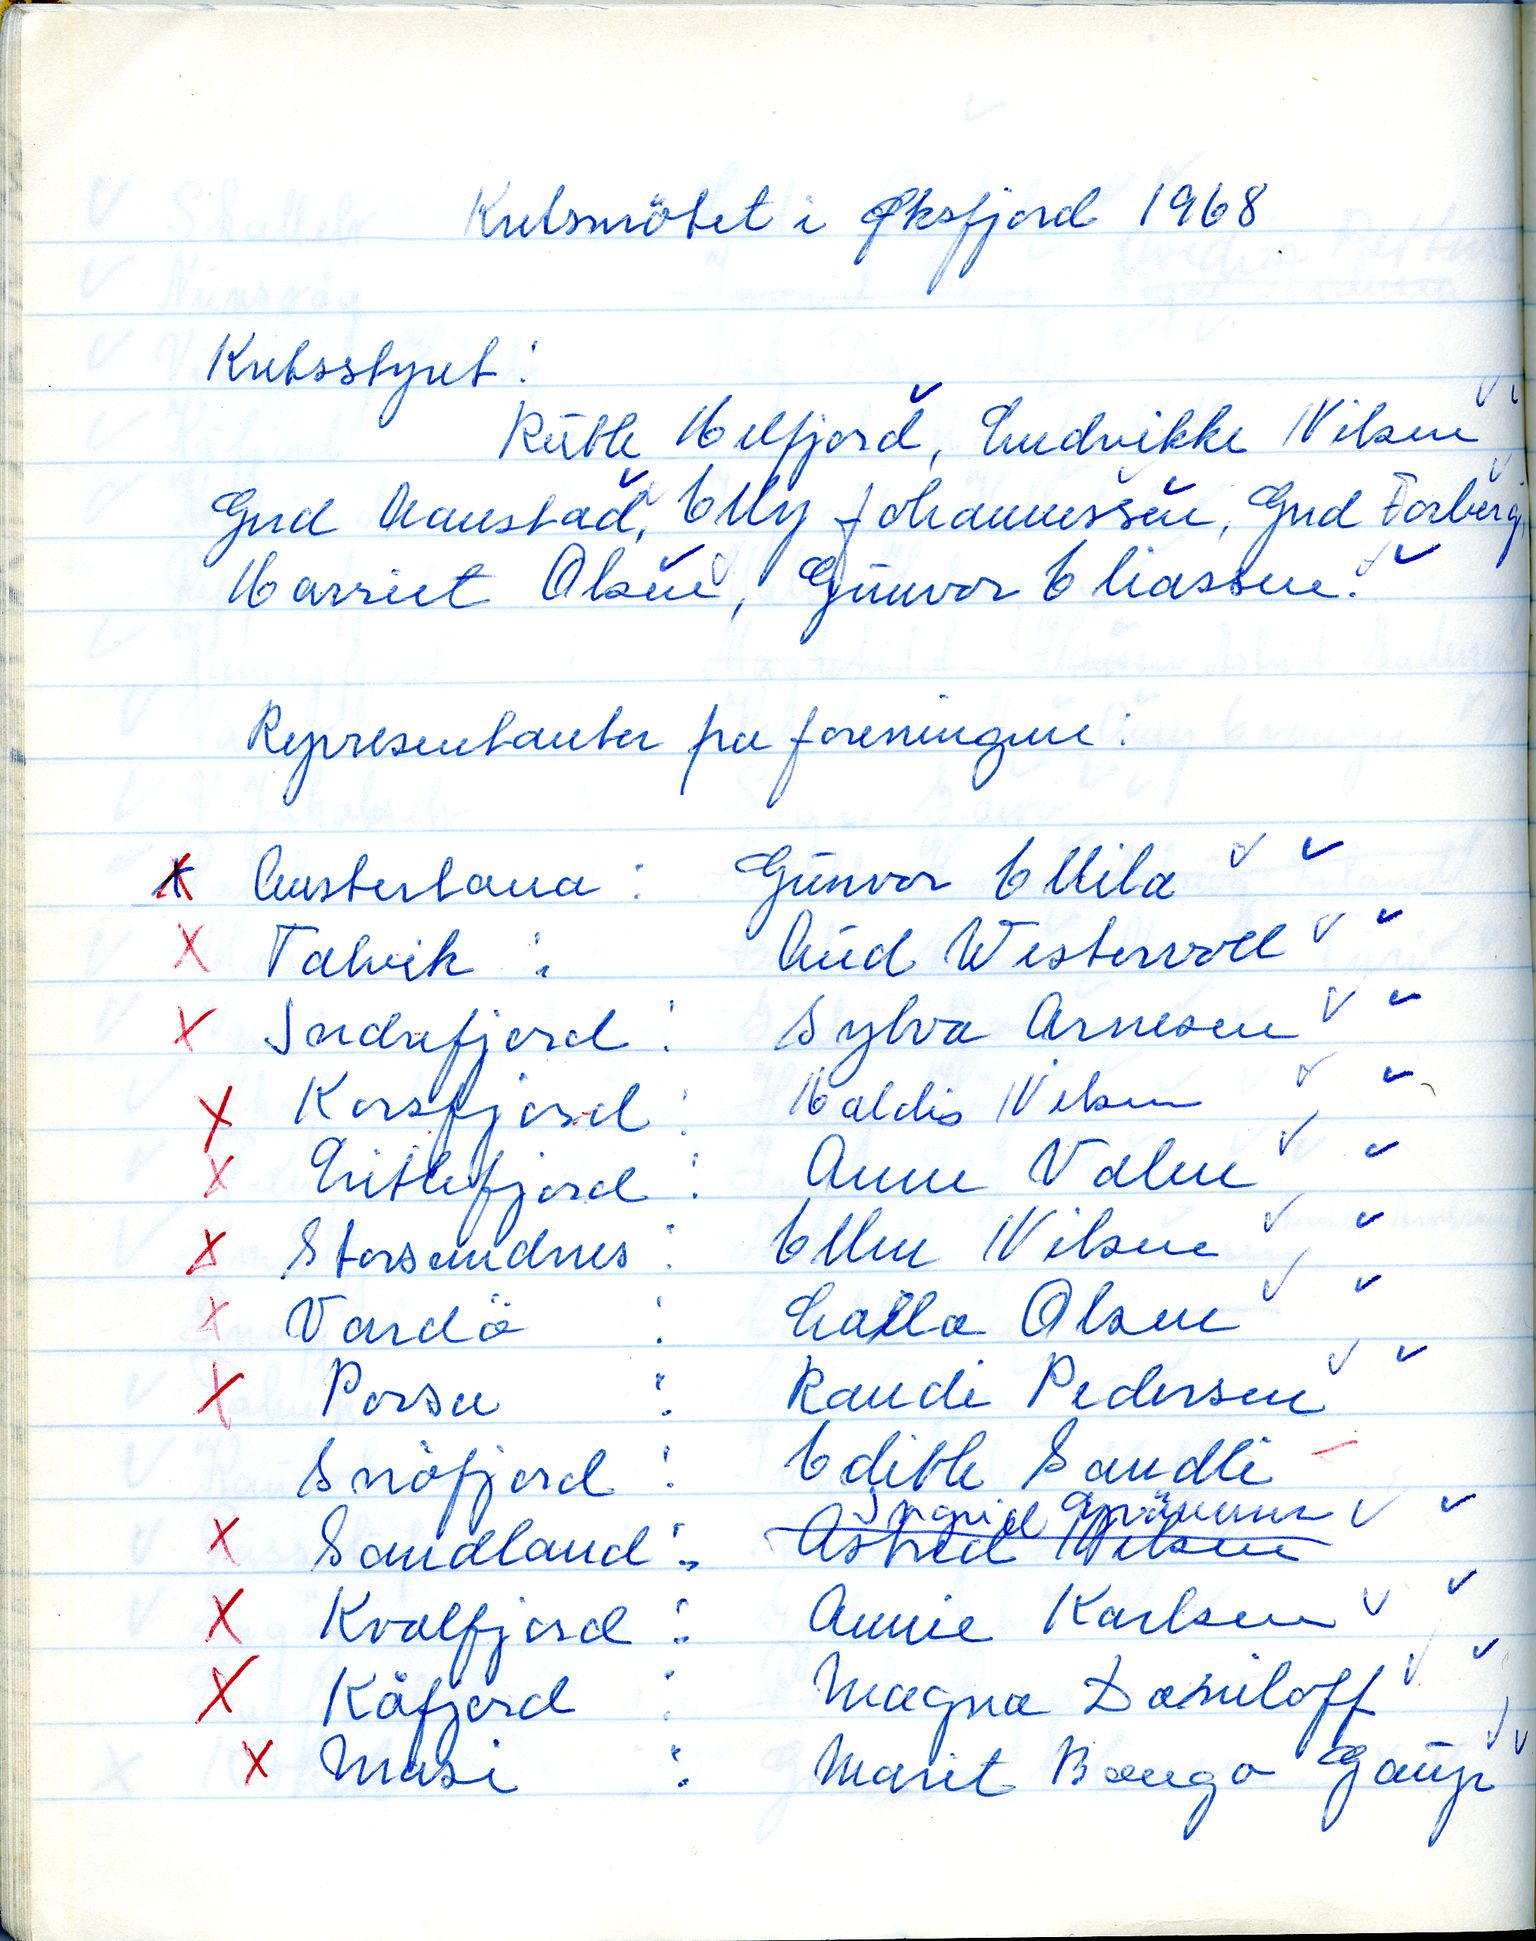 Kretsmötet i Øksfjord 1968
Kretsstyret:
Ruth Helfjord, Ludvikke Nilsen
Gud Aanstad, Elly Johannessen, Gud Torberg,
Harriet Olsen, Gunvor Eliassen.
Representanter fra foreningene:
x Austertana: Gunvor Ellila
x Talvik: Aud Westervoll
x Indrefjord: Sylva Arnesen
x Korsfjord: Haldis Nilsen
x Lillefjord: Anne Valen
x Storsandnes: Ellen Nilsen
x Vardö: Lalla Olsen
x Porsa: Randi Pedersen
Snöfjord: Edith Sandli
Ingrid
x Sandland: Astrid Nilsen
x Kvalfjord: Annie Karlsen
x Kåfjord: Magna Daniloff
x Masi: Marit Bongo Gaup